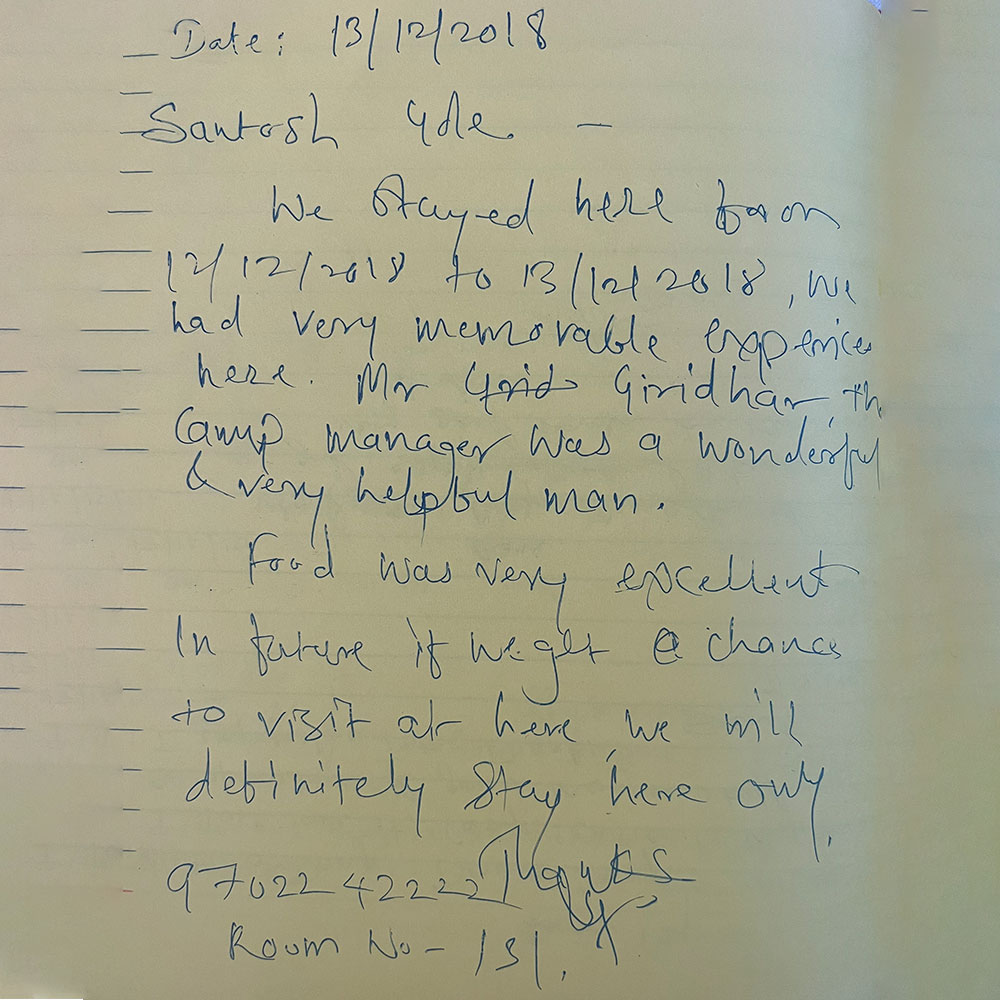 Date: 13/12/2018
Santosh —
We stayed here from
12/12/2018 to 13/12/2018, we
had very memorable experience
here. Mr Grid Giridhar, th
Camp manager was a wonderful
& very helpful man.
Food was very excellent
In future if we get a chance
to visit at here, we will
definitely stay here only.
9702242222 Thanks
Room No - 131.